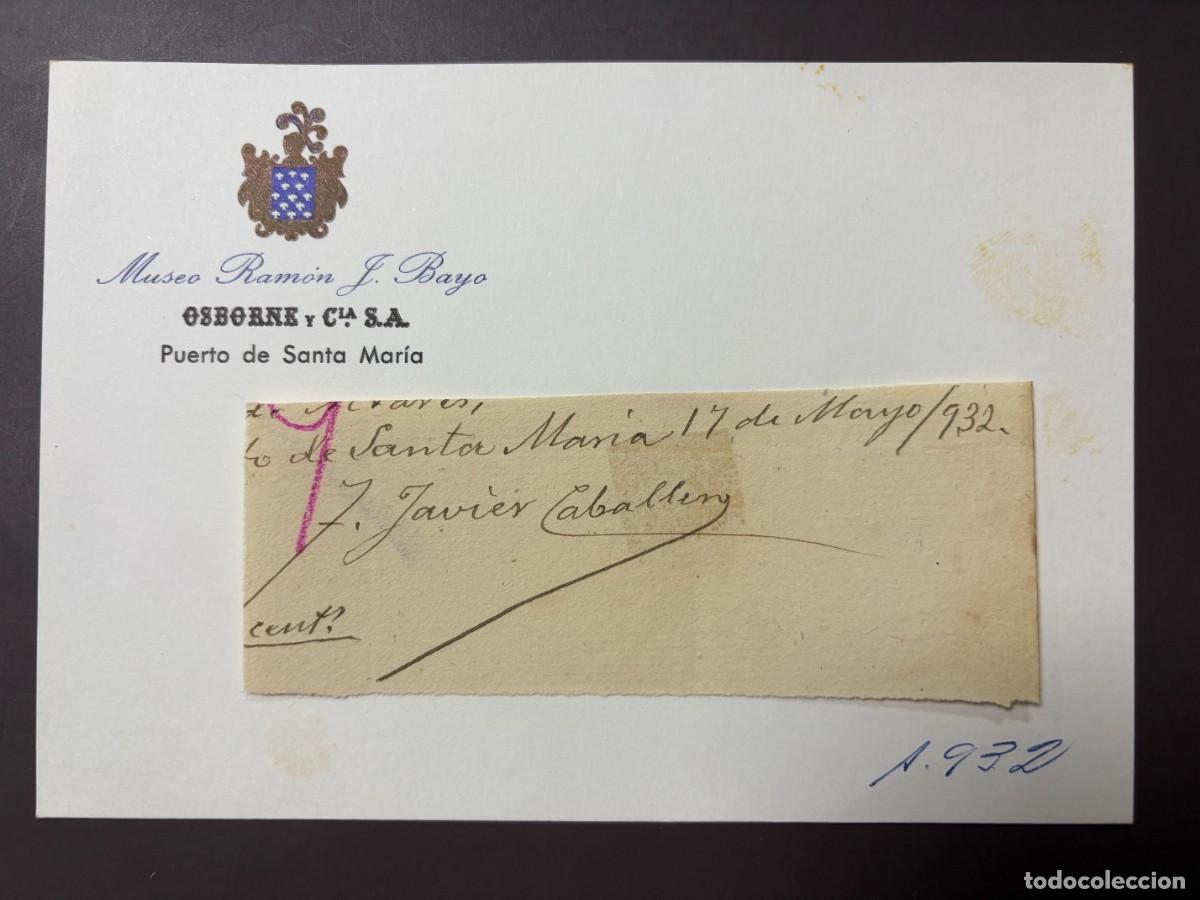 Museo Ramón J. Bayo
OSBORNE Y CÍA. S.A.
Puerto de Santa María
de Santa Maria 17 de Mayo/932.
F. Javiér Caballero
cent?
A.932
todocoleccion